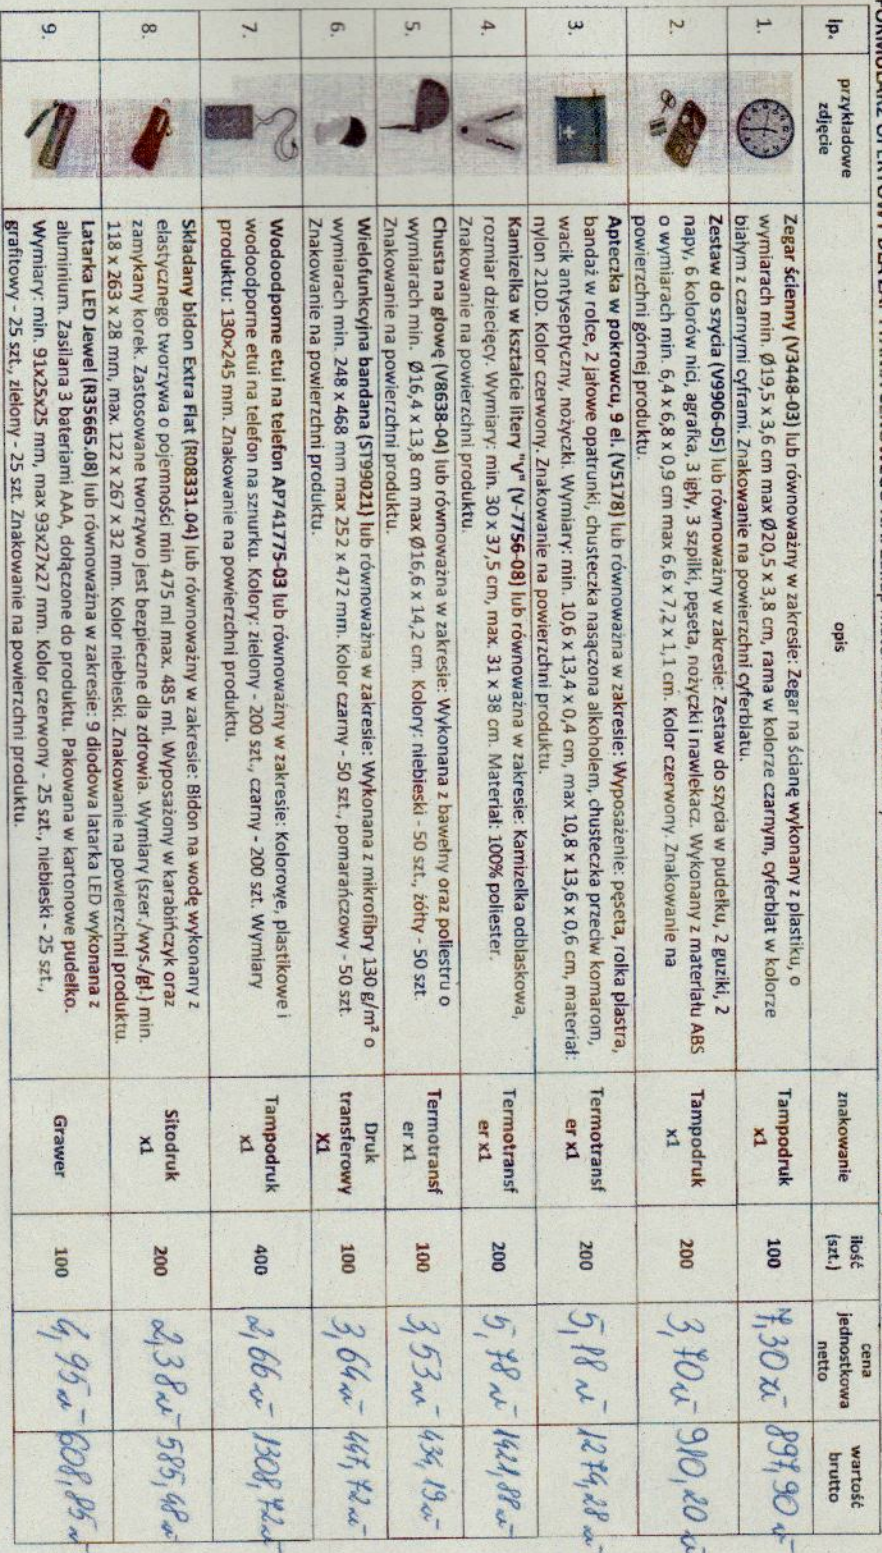 lp.
przykładowe
zdjęcie
opis
znakowanie
ilość
(szt.)
cena
jednostkowa
netto
wartość
brutto
1.
Zegar ścienny (V3448-03) lub równoważny w zakresie: Zegar na ścianę wykonany z plastiku, o
wymiarach min. Ø19,5 x 3,6 cm max Ø20,5 x 3,8 cm, rama w kolorze czarnym, cyferblat w kolorze
białym z czarnymi cyframi. Znakowanie na powierzchni cyferblatu.
Tampodruk
x1
100
7,30 zł
897,90 zł
2.
Zestaw do szycia (V9906-05) lub równoważny w zakresie: Zestaw do szycia w pudełku, 2 guziki, 2
napy, 6 kolorów nici, agrafka, 3 igły, 3 szpilki, pęseta, nożyczki i nawlekacz. Wykonany z materiału ABS
o wymiarach min. 6,4 x 6,8 x 0,9 cm max 6,6 x 7,2 x 1,1 cm. Kolor czerwony. Znakowanie na
powierzchni górnej produktu.
Tampodruk
x1
200
3,70 zł
910,20 zł
3.
Apteczka w pokrowcu, 9 el. (V5178) lub równoważna w zakresie: Wyposażenie: pęseta, rolka plastra,
bandaż w rolce, 2 jałowe opatrunki, chusteczka nasączona alkoholem, chusteczka przeciw komarom,
wacik antyseptyczny, nożyczki. Wymiary: min. 10,6 x 13,4 x 0,4 cm, max 10,8 x 13,6 x 0,6 cm, materiał:
nylon 210D. Kolor czerwony. Znakowanie na powierzchni produktu.
Termotransf
er x1
200
5,18 zł
1274,28 zł
4.
Kamizelka w kształcie litery "V" (V-7756-08) lub równoważna w zakresie: Kamizelka odblaskowa,
rozmiar dziecięcy. Wymiary: min. 30 x 37,5 cm, max. 31 x 38 cm. Materiał: 100% poliester.
Znakowanie na powierzchni produktu.
Termotransf
er x1
200
5,78 zł
1421,88 zł
5.
Chusta na głowę (V8638-04) lub równoważna w zakresie: Wykonana z bawełny oraz poliestru o
wymiarach min. Ø16,4 x 13,8 cm max Ø16,6 x 14,2 cm. Kolory: niebieski - 50 szt., żółty - 50 szt.
Znakowanie na powierzchni produktu.
Termotransf
er x1
100
3,53 zł
434,19 zł
6.
Wielofunkcyjna bandana (ST99021) lub równoważna w zakresie: Wykonana z mikrofibry 130 g/m² o
wymiarach min. 248 x 468 mm max 252 x 472 mm. Kolor czarny - 50 szt., pomarańczowy - 50 szt.
Znakowanie na powierzchni produktu.
Druk
transferowy
X1
100
3,64 zł
447,72 zł
7.
Wodoodporne etui na telefon AP741775-03 lub równoważny w zakresie: Kolorowe, plastikowe i
wodoodporne etui na telefon na sznurku. Kolory: zielony - 200 szt., czarny - 200 szt. Wymiary
produktu: 130x245 mm. Znakowanie na powierzchni produktu.
Tampodruk
x1
400
2,66 zł
1308,72 zł
8.
Składany bidon Extra Flat (R08331.04) lub równoważny w zakresie: Bidon na wodę wykonany z
elastycznego tworzywa o pojemności min 475 ml max. 485 ml. Wyposażony w karabińczyk oraz
zamykany korek. Zastosowane tworzywo jest bezpieczne dla zdrowia. Wymiary (szer./wys./gł.) min.
118 x 263 x 28 mm, max. 122 x 267 x 32 mm. Kolor niebieski. Znakowanie na powierzchni produktu.
Sitodruk
x1
200
2,38 zł
585,48 zł
9.
Latarka LED Jewel (R35665.08) lub równoważna w zakresie: 9 diodowa latarka LED wykonana z
aluminium. Zasilana 3 bateriami AAA, dołączone do produktu. Pakowana w kartonowe pudełko.
Wymiary: min. 91x25x25 mm, max 93x27x27 mm. Kolor czerwony - 25 szt., niebieski - 25 szt.,
grafitowy - 25 szt., zielony - 25 szt. Znakowanie na powierzchni produktu.
Grawer
100
4,95 zł
608,85 zł